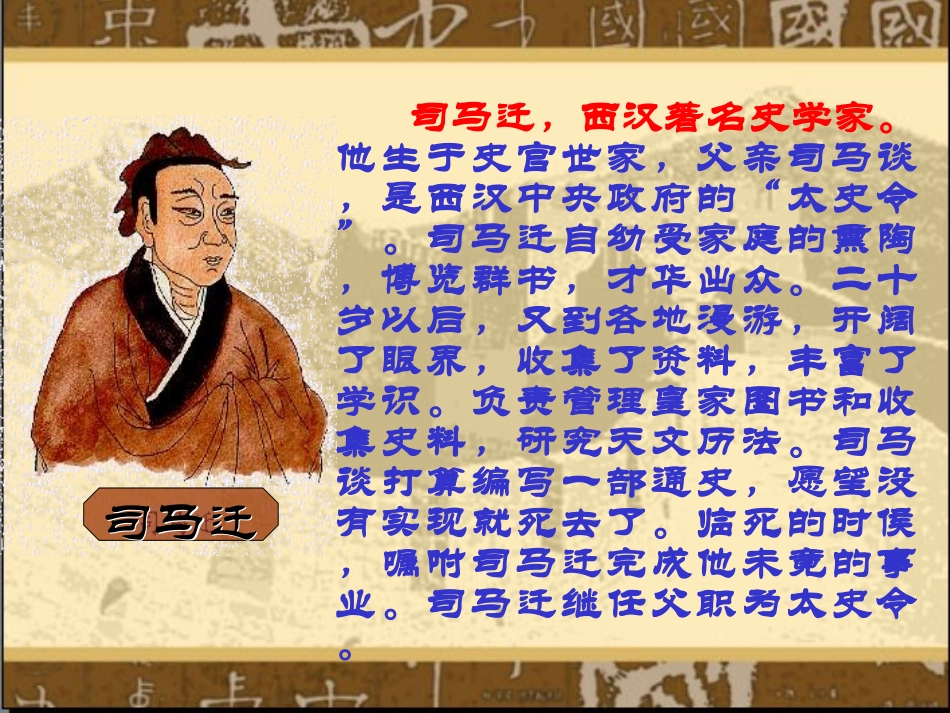 司马迁，西汉著名史学家。
他生于史官世家，父亲司马谈
，是西汉中央政府的“太史令
”。司马迁自幼受家庭的熏陶
，博览群书，才华出众。二十
岁以后，又到各地漫游，开阔
了眼界，收集了资料，丰富了
学识。负责管理皇家图书和收
集史料，研究天文历法。司马
谈打算编写一部通史，愿望没
有实现就死去了。临死的时候
，嘱咐司马迁完成他未竟的事
业。司马迁继任父职为太史令
。
司马迁